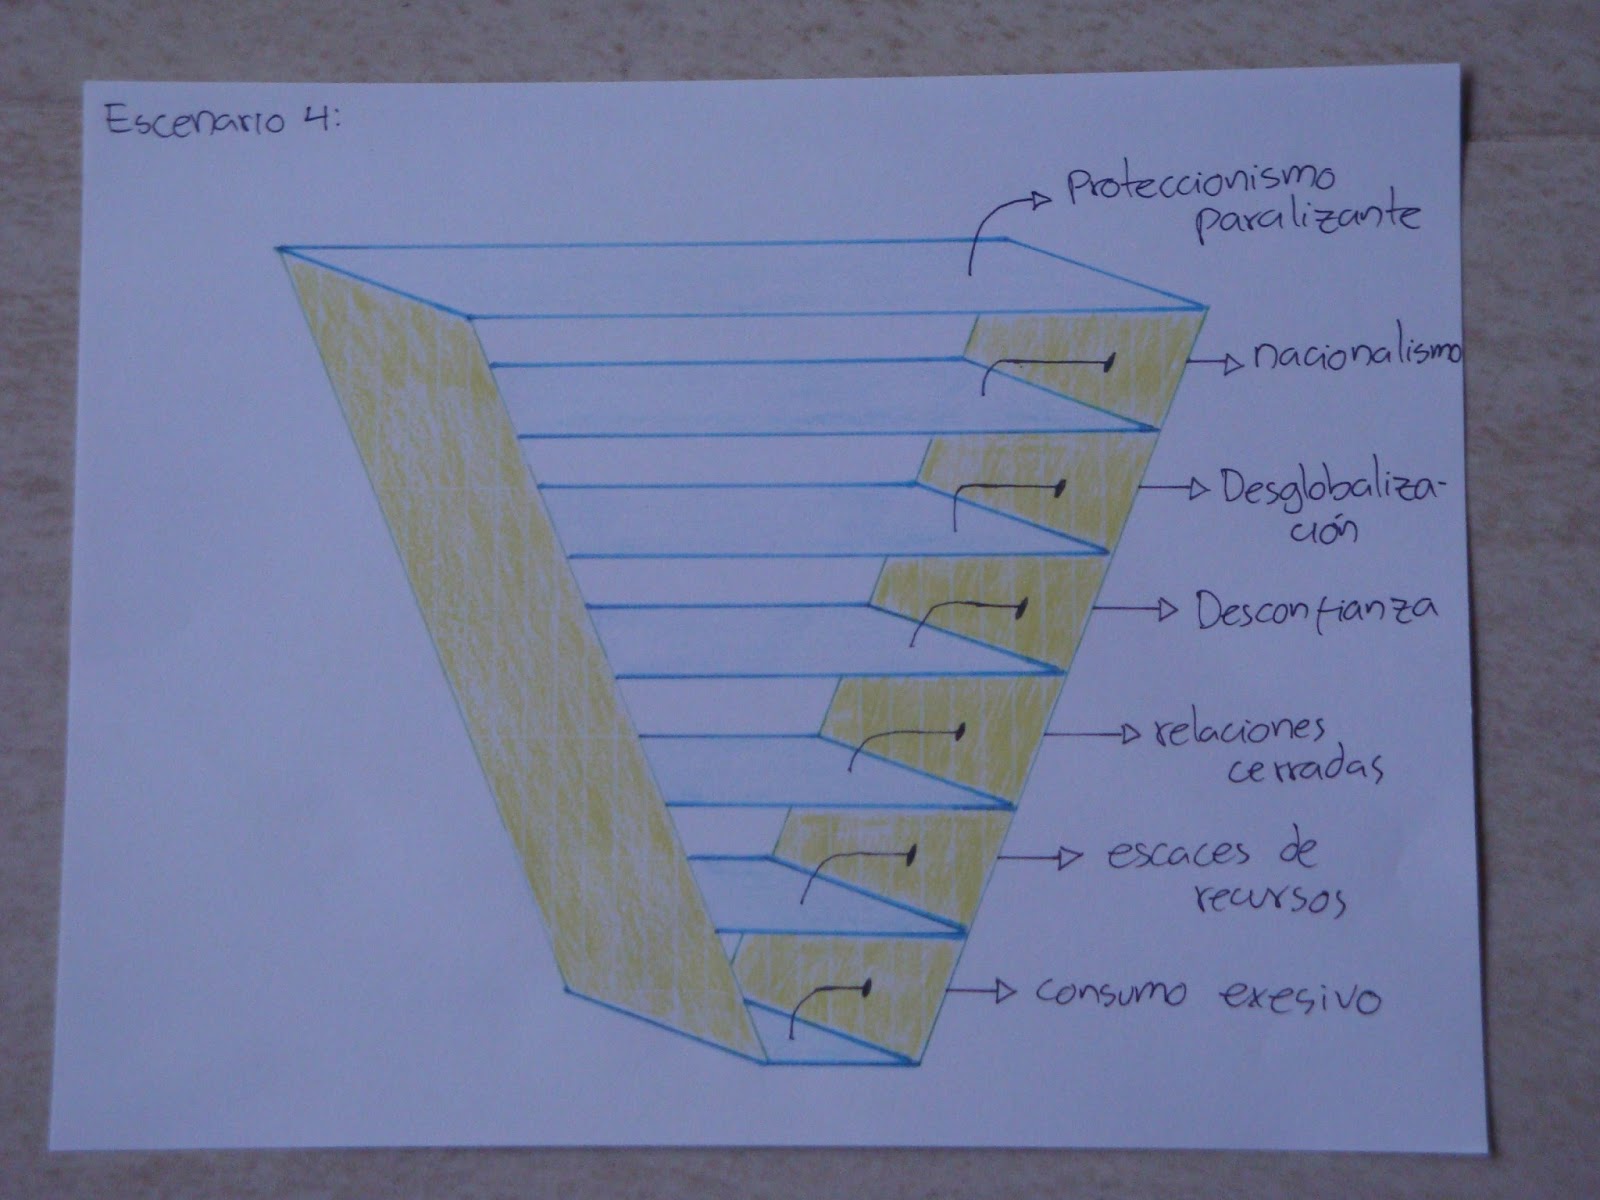 Escenario 4:
Proteccionismo
paralizante
nacionalismo
Desglobaliza-
ción
Desconfianza
relaciones
cerradas
escaces de
recursos
consumo exesivo